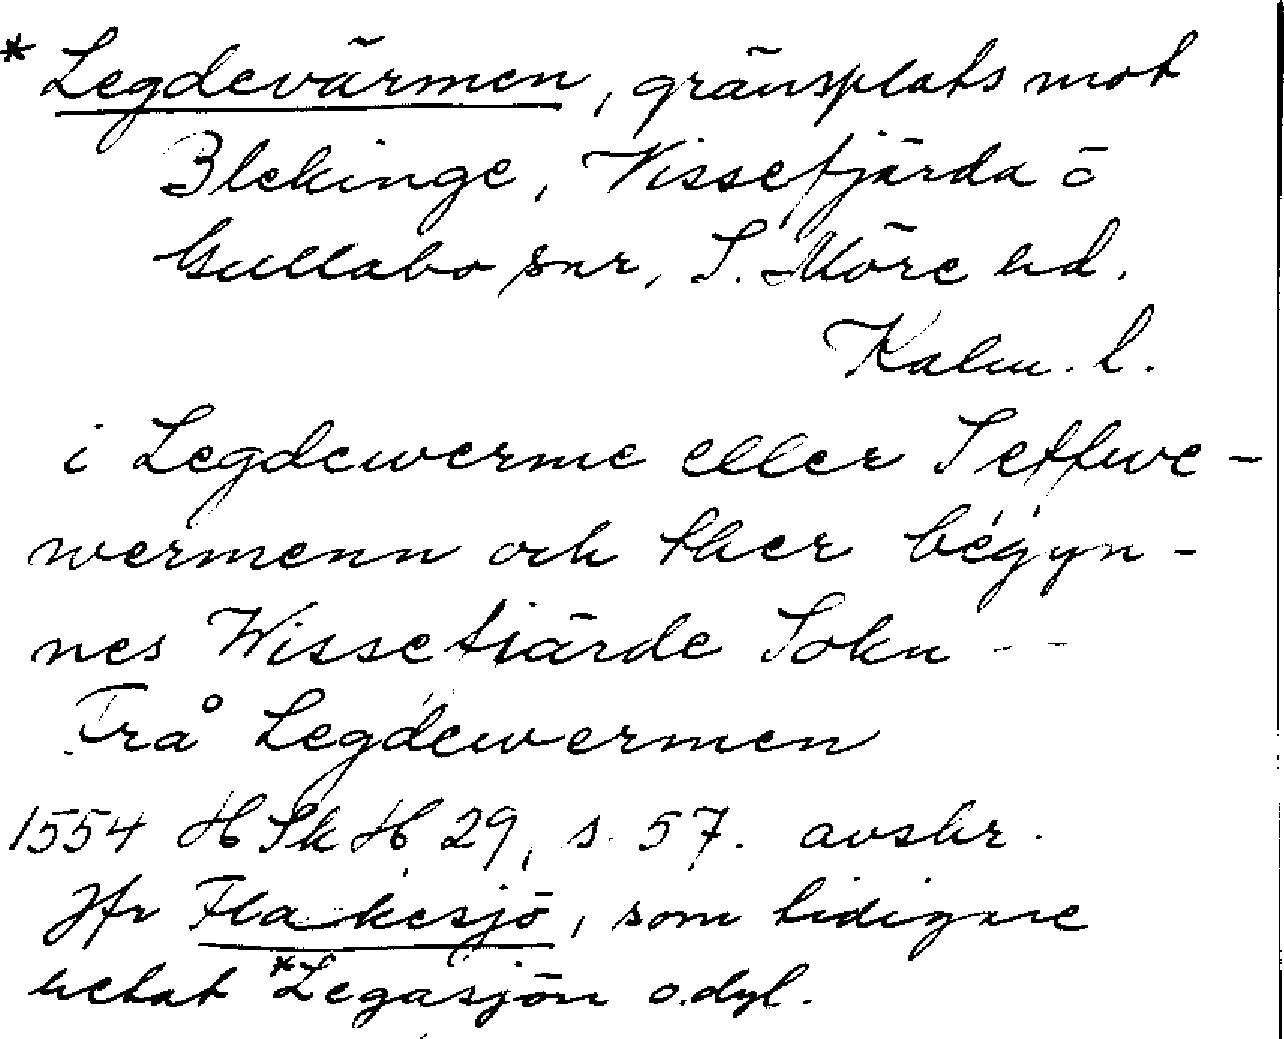 *Legdevärmen, gränsplats mot
Blekinge, Vissefjärda o
Gullabo snr, S. Möre hd.
Kalm. l.
i Legdewerme eller Setfwe-
wermenn och ther begyn-
nes Wissefiärde Sokn - -
Frå Legdewermen
1554 HSkH 29, s. 57. avskr.
Jfr Flakesjö, som tidigare
hetat *Legasjön o.dyl.